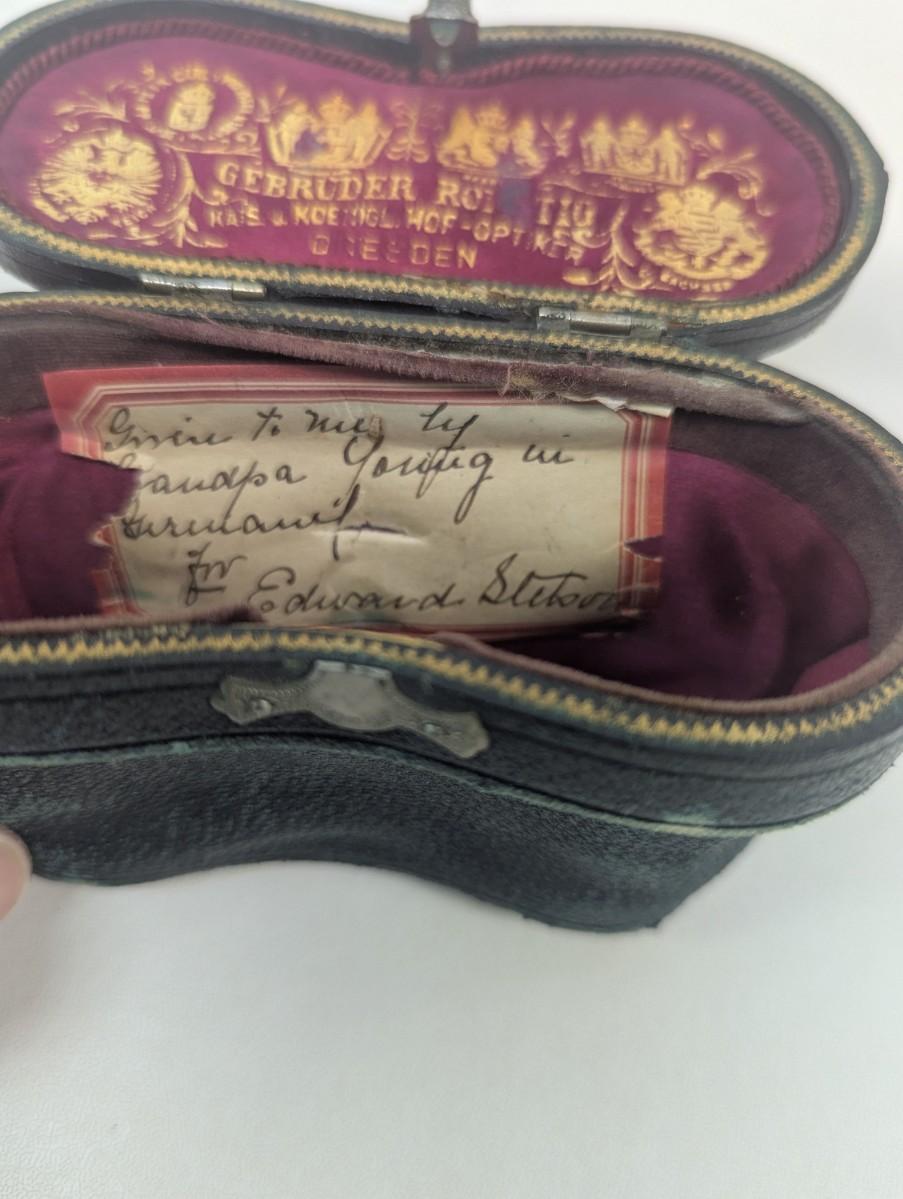 GEBRÜDER RO TIG
KAIS. U. KOENIGL. HOF-OPTIKER
DRESDEN
Given to me by
Grandpa Young in
Germany
for
Edward Stetson